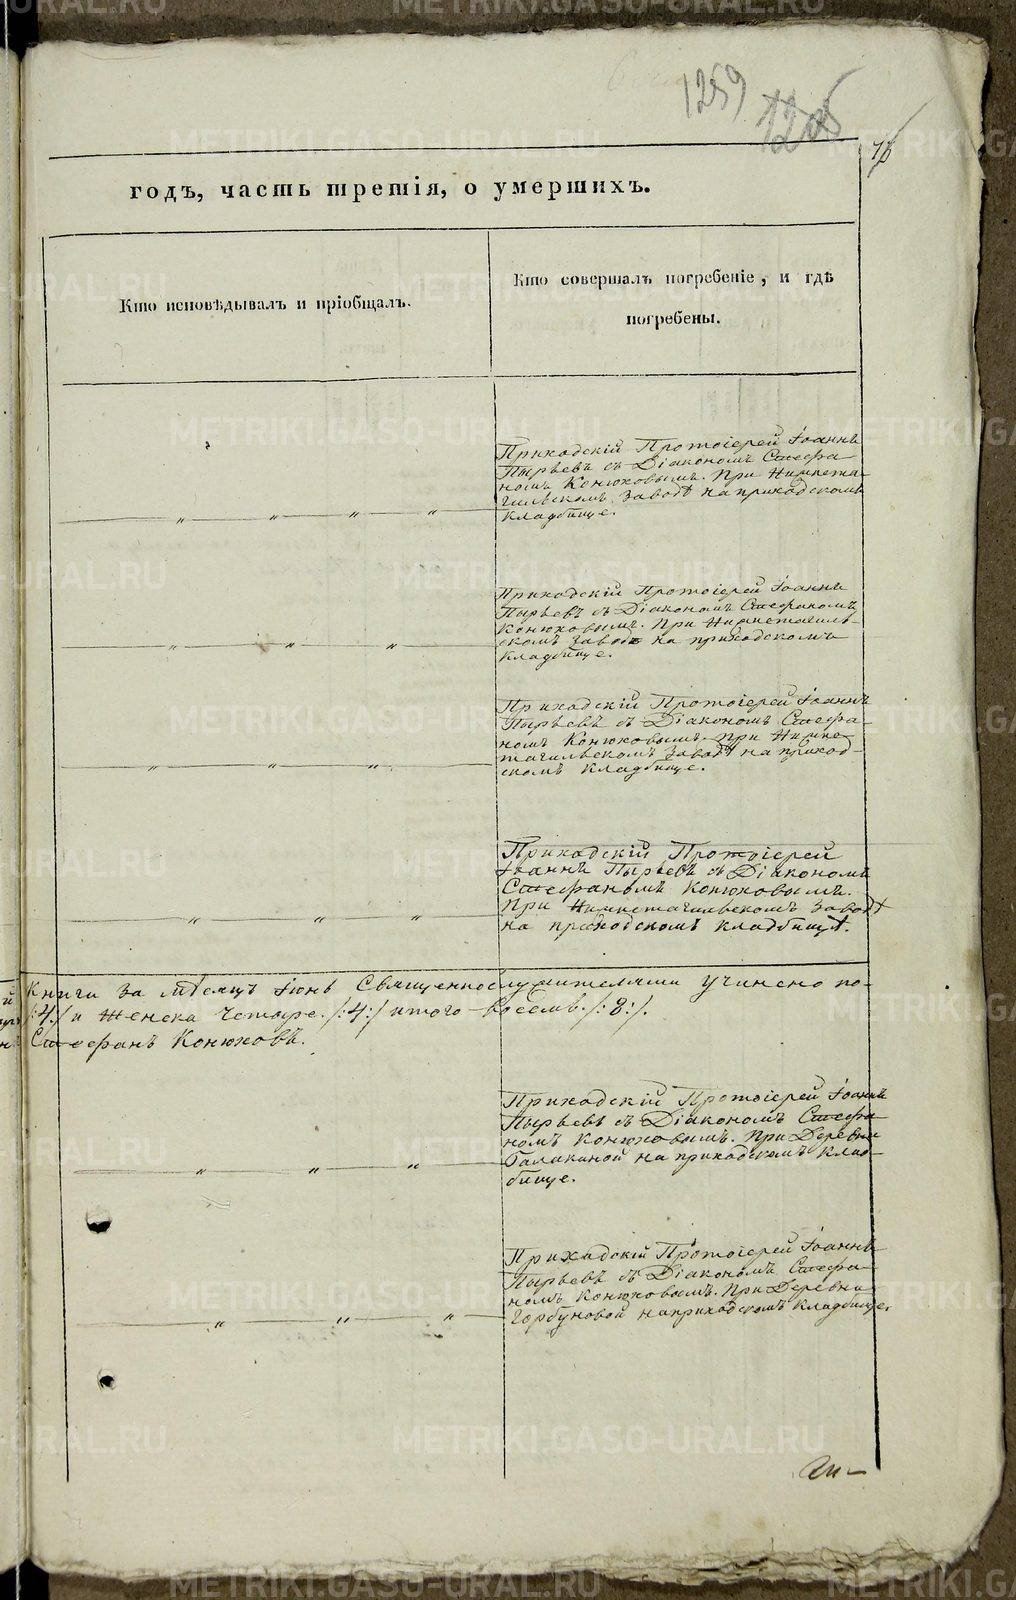 1259
годъ, часть третія, о умершихъ.
Кто исповѣдывалъ и пріобщалъ.
Кто совершалъ погребеніе, и гдѣ
погребены.
Приходскій Протоіерей Іоаннъ
Пырьевъ съ Діакономъ Стефа-
номъ Конюховымъ. При Нижнета-
гильскомъ заводѣ на приходскомъ
кладбище.
Приходскій Протоіерей Іоаннъ
Пырьевъ съ Діакономъ Стефаномъ
Конюховымъ. При Нижнетагиль-
скомъ заводе на приходскомъ
кладбище.
Приходскій Протоіерей Іоаннъ
Пырьевъ съ Діакономъ Стефа-
номъ Конюховымъ. При Нижне-
тагильскомъ заводѣ на приход-
скомъ кладбище.
Приходскій Протоіерей
Іоаннъ Пырьевъ съ Діакономъ
Стефаномъ Конюховымъ.
При Нижнетагильскомъ заводѣ
на приходскомъ кладбищѣ.
Книги за мѣсяцъ Іюнь Священнослужителями учинено по-
/:4:/ и женска четыре. /:4:/ итого восемь. /:8:/.
Стефанъ Конюховъ.
Приходскій Протоіерей Іоаннъ
Пырьевъ съ Діакономъ Стефа-
номъ Конюховымъ. При Деревне
Галашной на приходскомъ клад-
бище.
Приходскій Протоіерей Іоаннъ
Пырьевъ съ Діакономъ Стефа-
номъ Конюховымъ. При Деревни
Горбуновой на приходскомъ кладбище.
METRIKI.GASO-URAL.RU